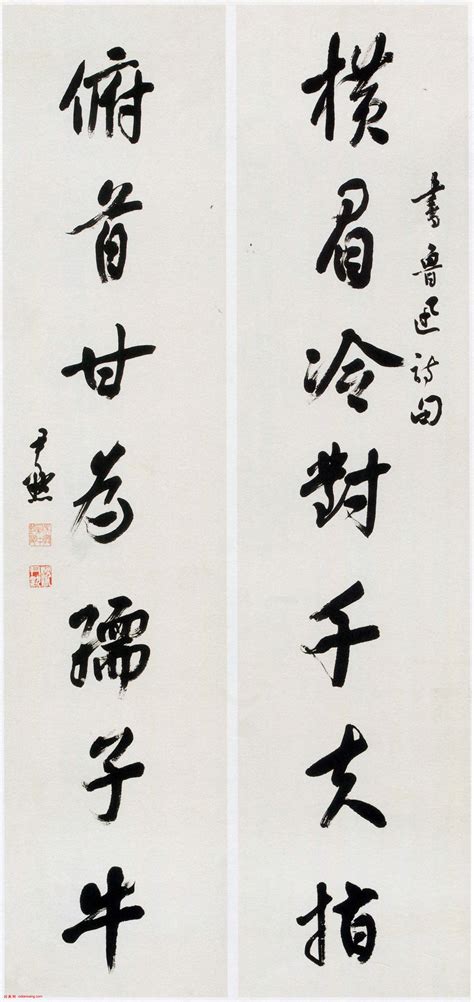 橫眉冷對千夫指
書魯迅詩句
俯首甘為孺子牛
尹默